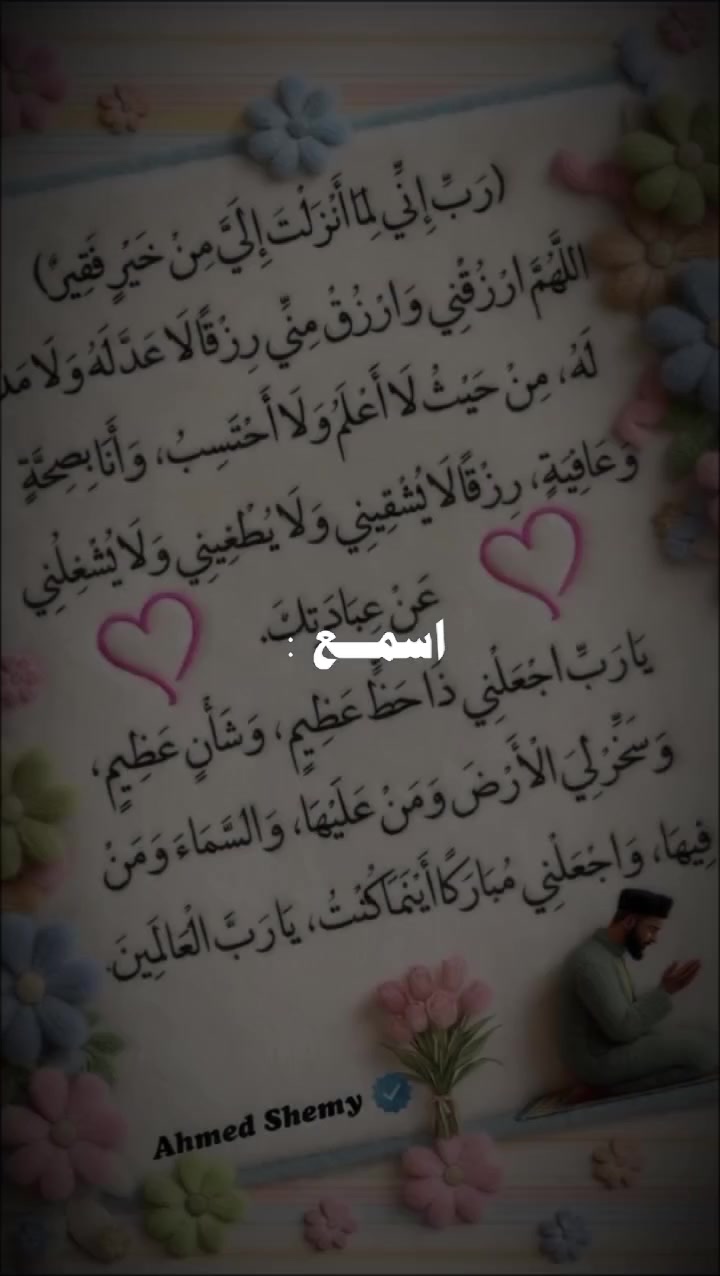 (رَبِّ إِنِّي لِمَا أَنْزَلْتَ إِلَيَّ مِنْ خَيْرٍ فَقِيرٌ)
اللَّهُمَّ ارْزُقْنِي وَارْزُقْ مِنِّي رِزْقًا لَا عَدَّ لَهُ وَلَا
لَهُ، مِنْ حَيْثُ لَا أَعْلَمُ وَلَا أَحْتَسِبُ، وَأَنَا بِصِحَّةٍ
وَعَافِيَةٍ، رِزْقًا لَا يُشْقِينِي وَلَا يُطْغِينِي وَلَا يُشْغِلُنِي
عَنْ عِبَادَتِكَ.
اسمـــع :
يَا رَبِّ اجْعَلْنِي ذَا حَظٍّ عَظِيمٍ، وَشَأْنٍ عَظِيمٍ،
وَسَخِّرْ لِيَ الْأَرْضَ وَمَنْ عَلَيْهَا، وَالسَّمَاءَ وَمَنْ
فِيهَا، وَاجْعَلْنِي مُبَارَكًا أَيْنَمَا كُنْتُ، يَا رَبَّ الْعَالَمِينَ.
Ahmed Shemy